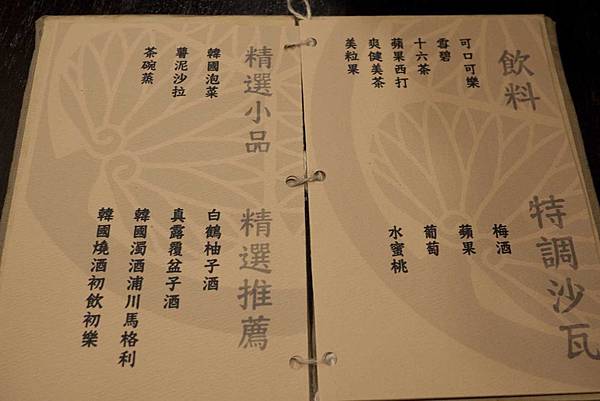 飲料
可口可樂
雪碧
十六茶
蘋果西打
爽健美茶
美粒果
特調沙瓦
梅酒
蘋果
葡萄
水蜜桃
精選小品
韓國泡菜
薯泥沙拉
茶碗蒸
精選推薦
白鶴柚子酒
真露覆盆子酒
韓國濁酒浦川馬格利
韓國燒酒初飲初樂